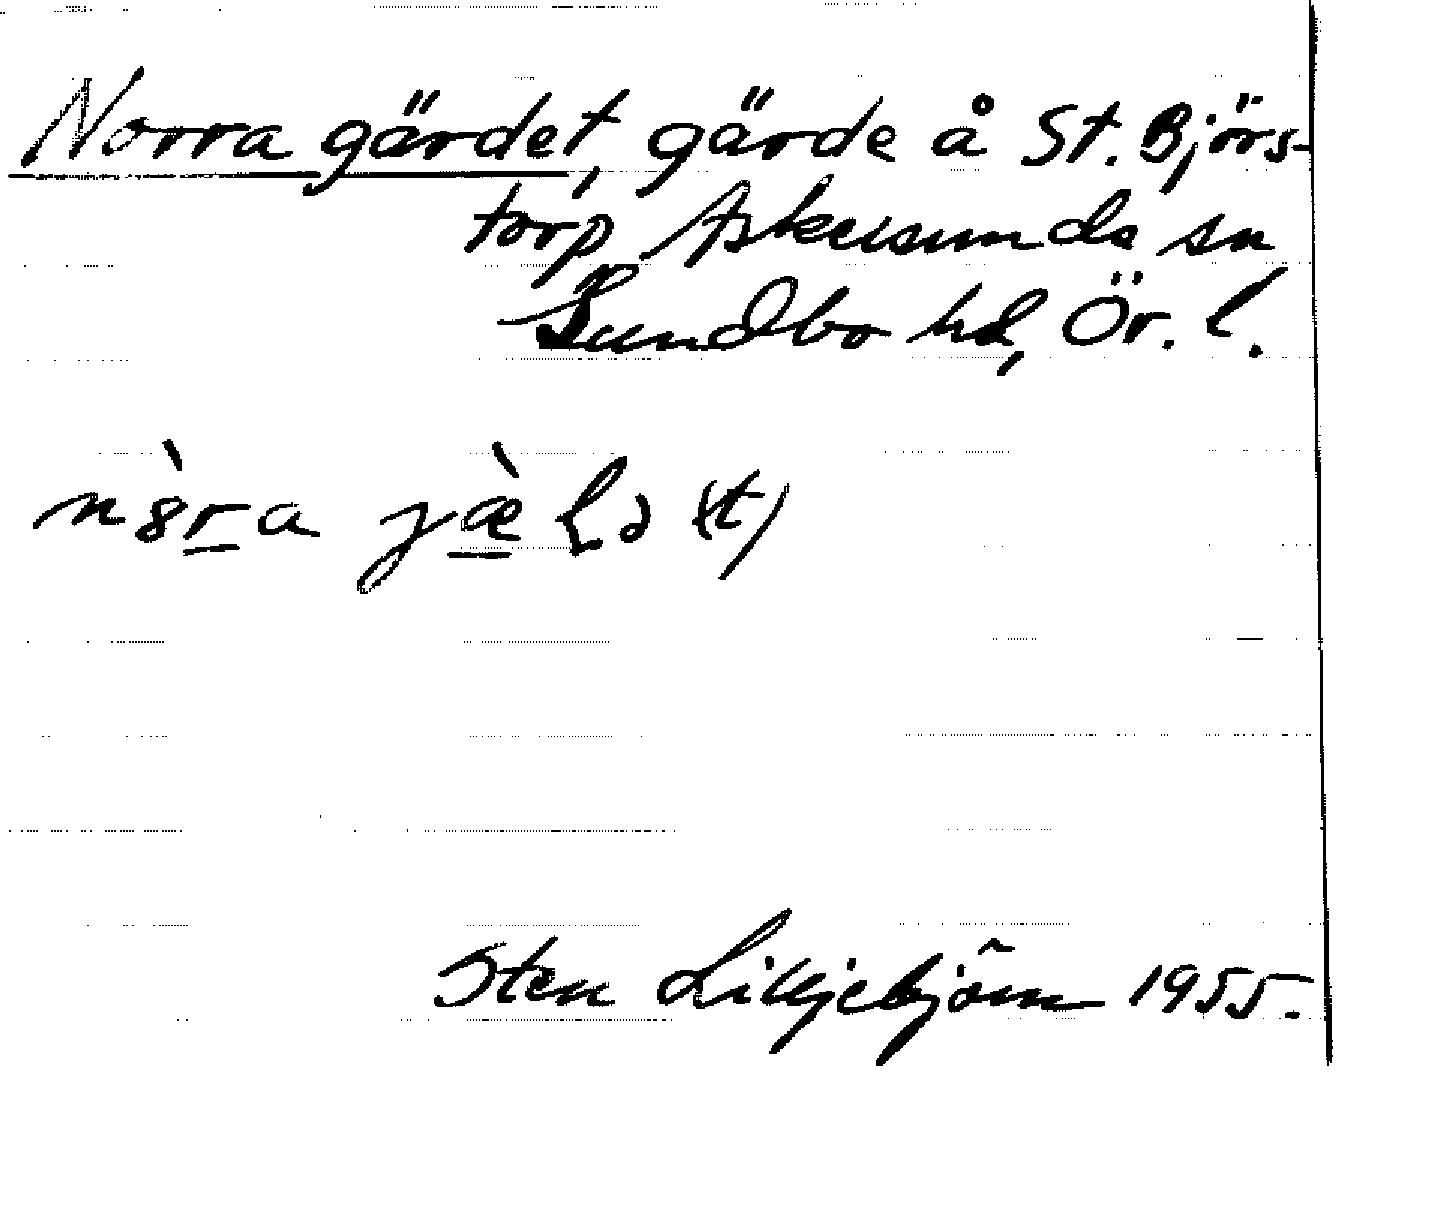 Norra gärdet, gärde å St. Björs-
torp Askersunds sn
Sundbo hd, Ör. l.
Sten Lilljebjörn 1955.